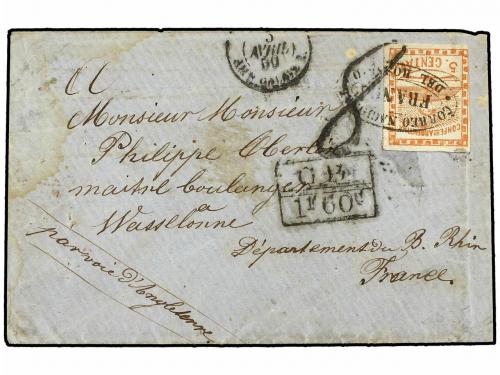 5 CENTAV
CONFEDERACION
CORREO NACIONAL
DEL ROSARIO
FRANCA
AVRIL
60
GB
1F60C
Monsieur Monsieur
Philippe Oberlin
maitre boulanger
a
Wasselonne
Département du B. Rhin
France.
par voie d'Angleterre